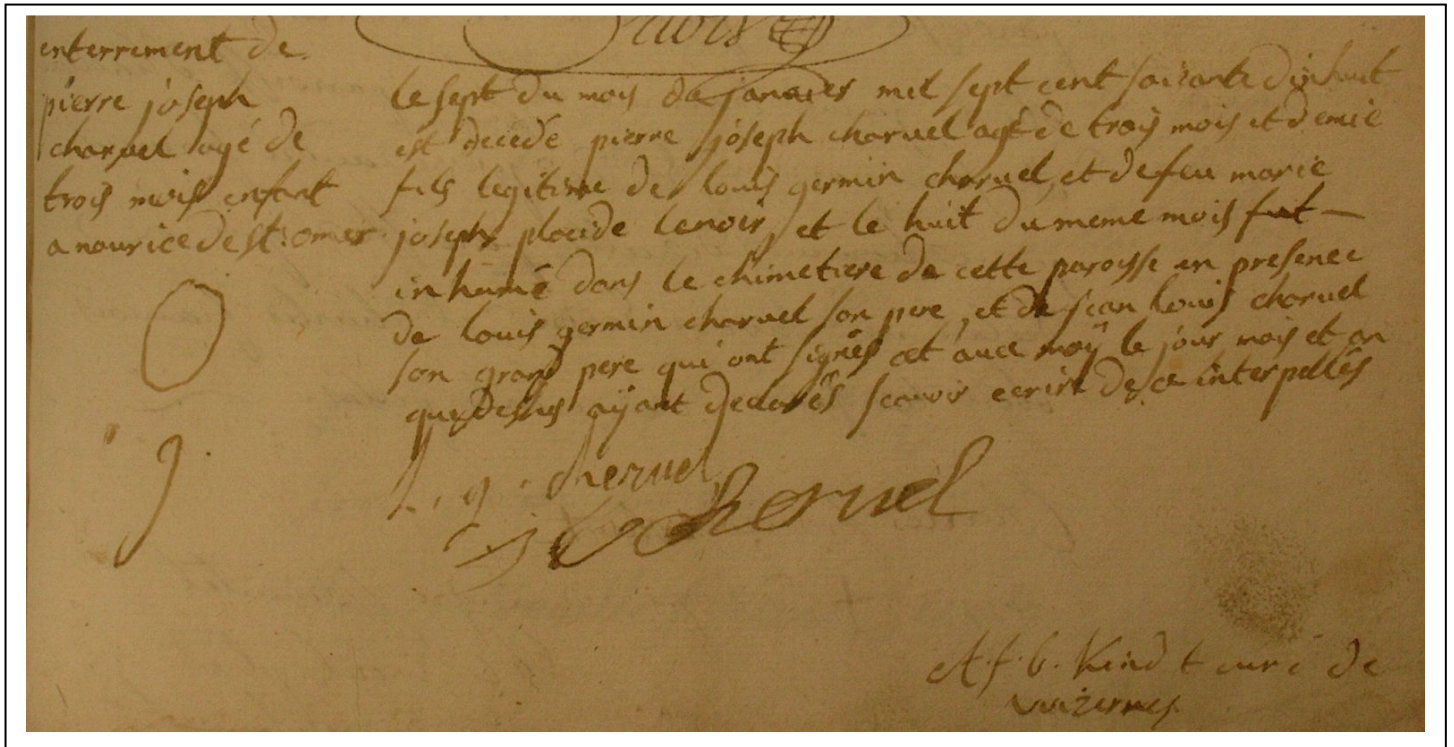 enterrement de
pierre joseph
charuel agé de
trois mois enfant
a nourice de st: omer
le sept du mois de janvier mil sept cent soixante dixhuit
est decedé pierre joseph charuel agé de trois mois et demie
fils legitime de louis germin charuel, et de feu marie
joseph placide lenoir, et le huit du meme mois fut
inhumé dans le chimetiere de cette paroisse en presence
de louis germin charuel son pere, et de jean louis charuel
son grand pere qui ont signés cet avec moÿ le jour mois et an
que dessus aÿant declarés scavoir ecrire de ce interpellés
l. g. cheruel
j l cheruel
A. f. b. Kindt curé de
wizernes